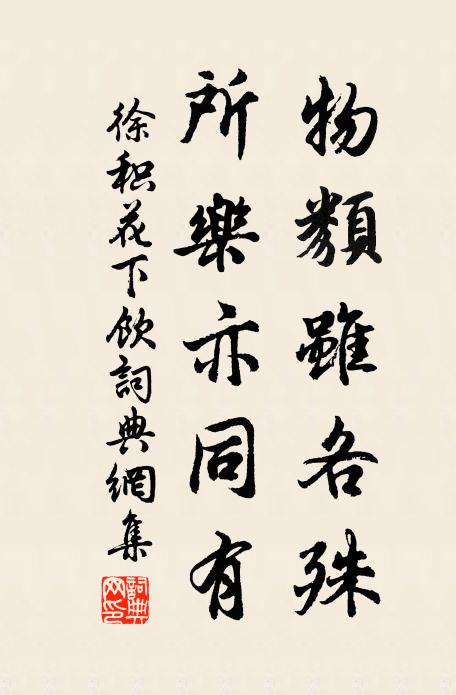 物類雖各殊
所樂亦同有
徐积花下飲詞典網集
詞典网印